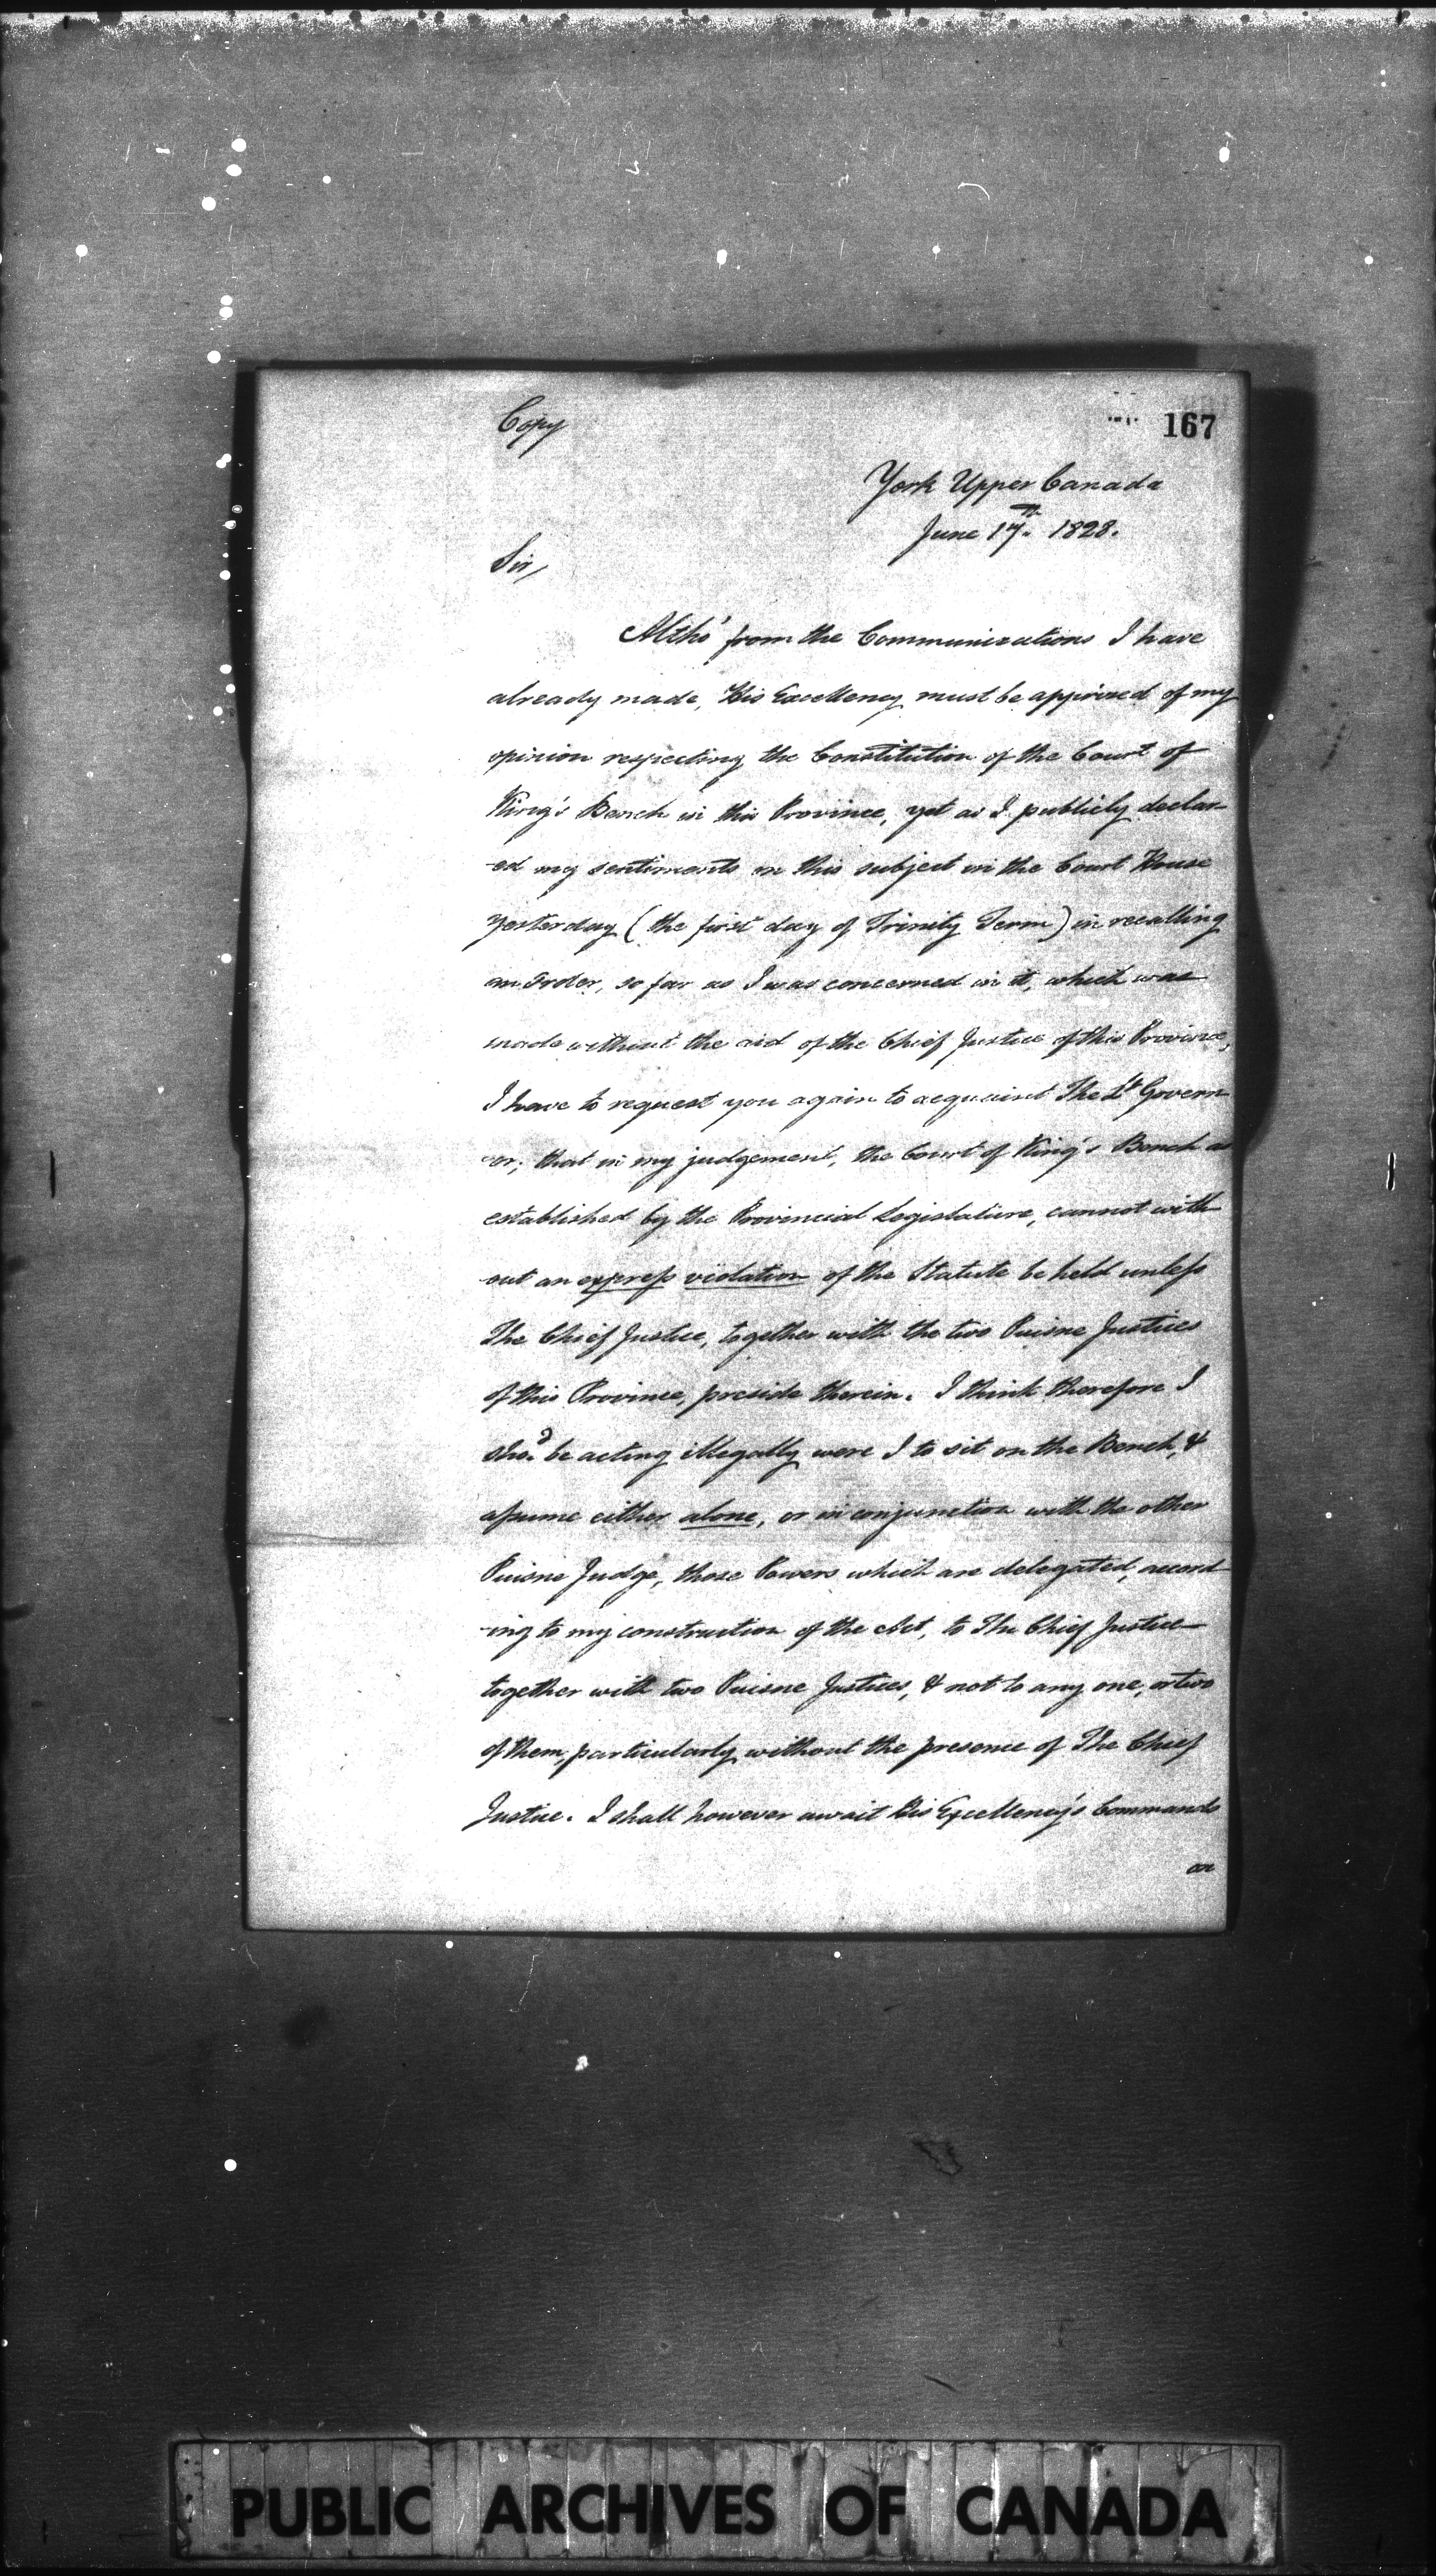 Copy
167
York Upper Canada
June 17th. 1828.
Sir,
Altho' from the Communications I have
already made, His Excellency must be apprized of my
opinion respecting the Constitution of the Court of
King's Bench in this Province, yet as I publicly declar
-ed my sentiments on this subject in the Court House
yesterday (the first day of Trinity Term) in recalling
an order, so far as I was concerned in it, which was
made without the aid of the Chief Justice of this Province,
I have to request you again to acquaint The Lt Govern
-or; that in my judgement, the Court of King's Bench as
established by the Provincial Legislature, cannot with
-out an express violation of the Statute be held unless
The Chief Justice, together with the two Puisne Justices
of this Province, preside therein. I think therefore I
shod. be acting illegally were I to sit on the Bench, &
assume either alone, or in conjunction with the other
Puisne Judge, those Powers which are delegated, accord
-ing to my construction of the Act, to The Chief Justice
together with two Puisne Justices, & not to any one, or two
of them, particularly without the presence of The Chief
Justice. I shall however await His Excellency's Commands
on
PUBLIC ARCHIVES OF CANADA